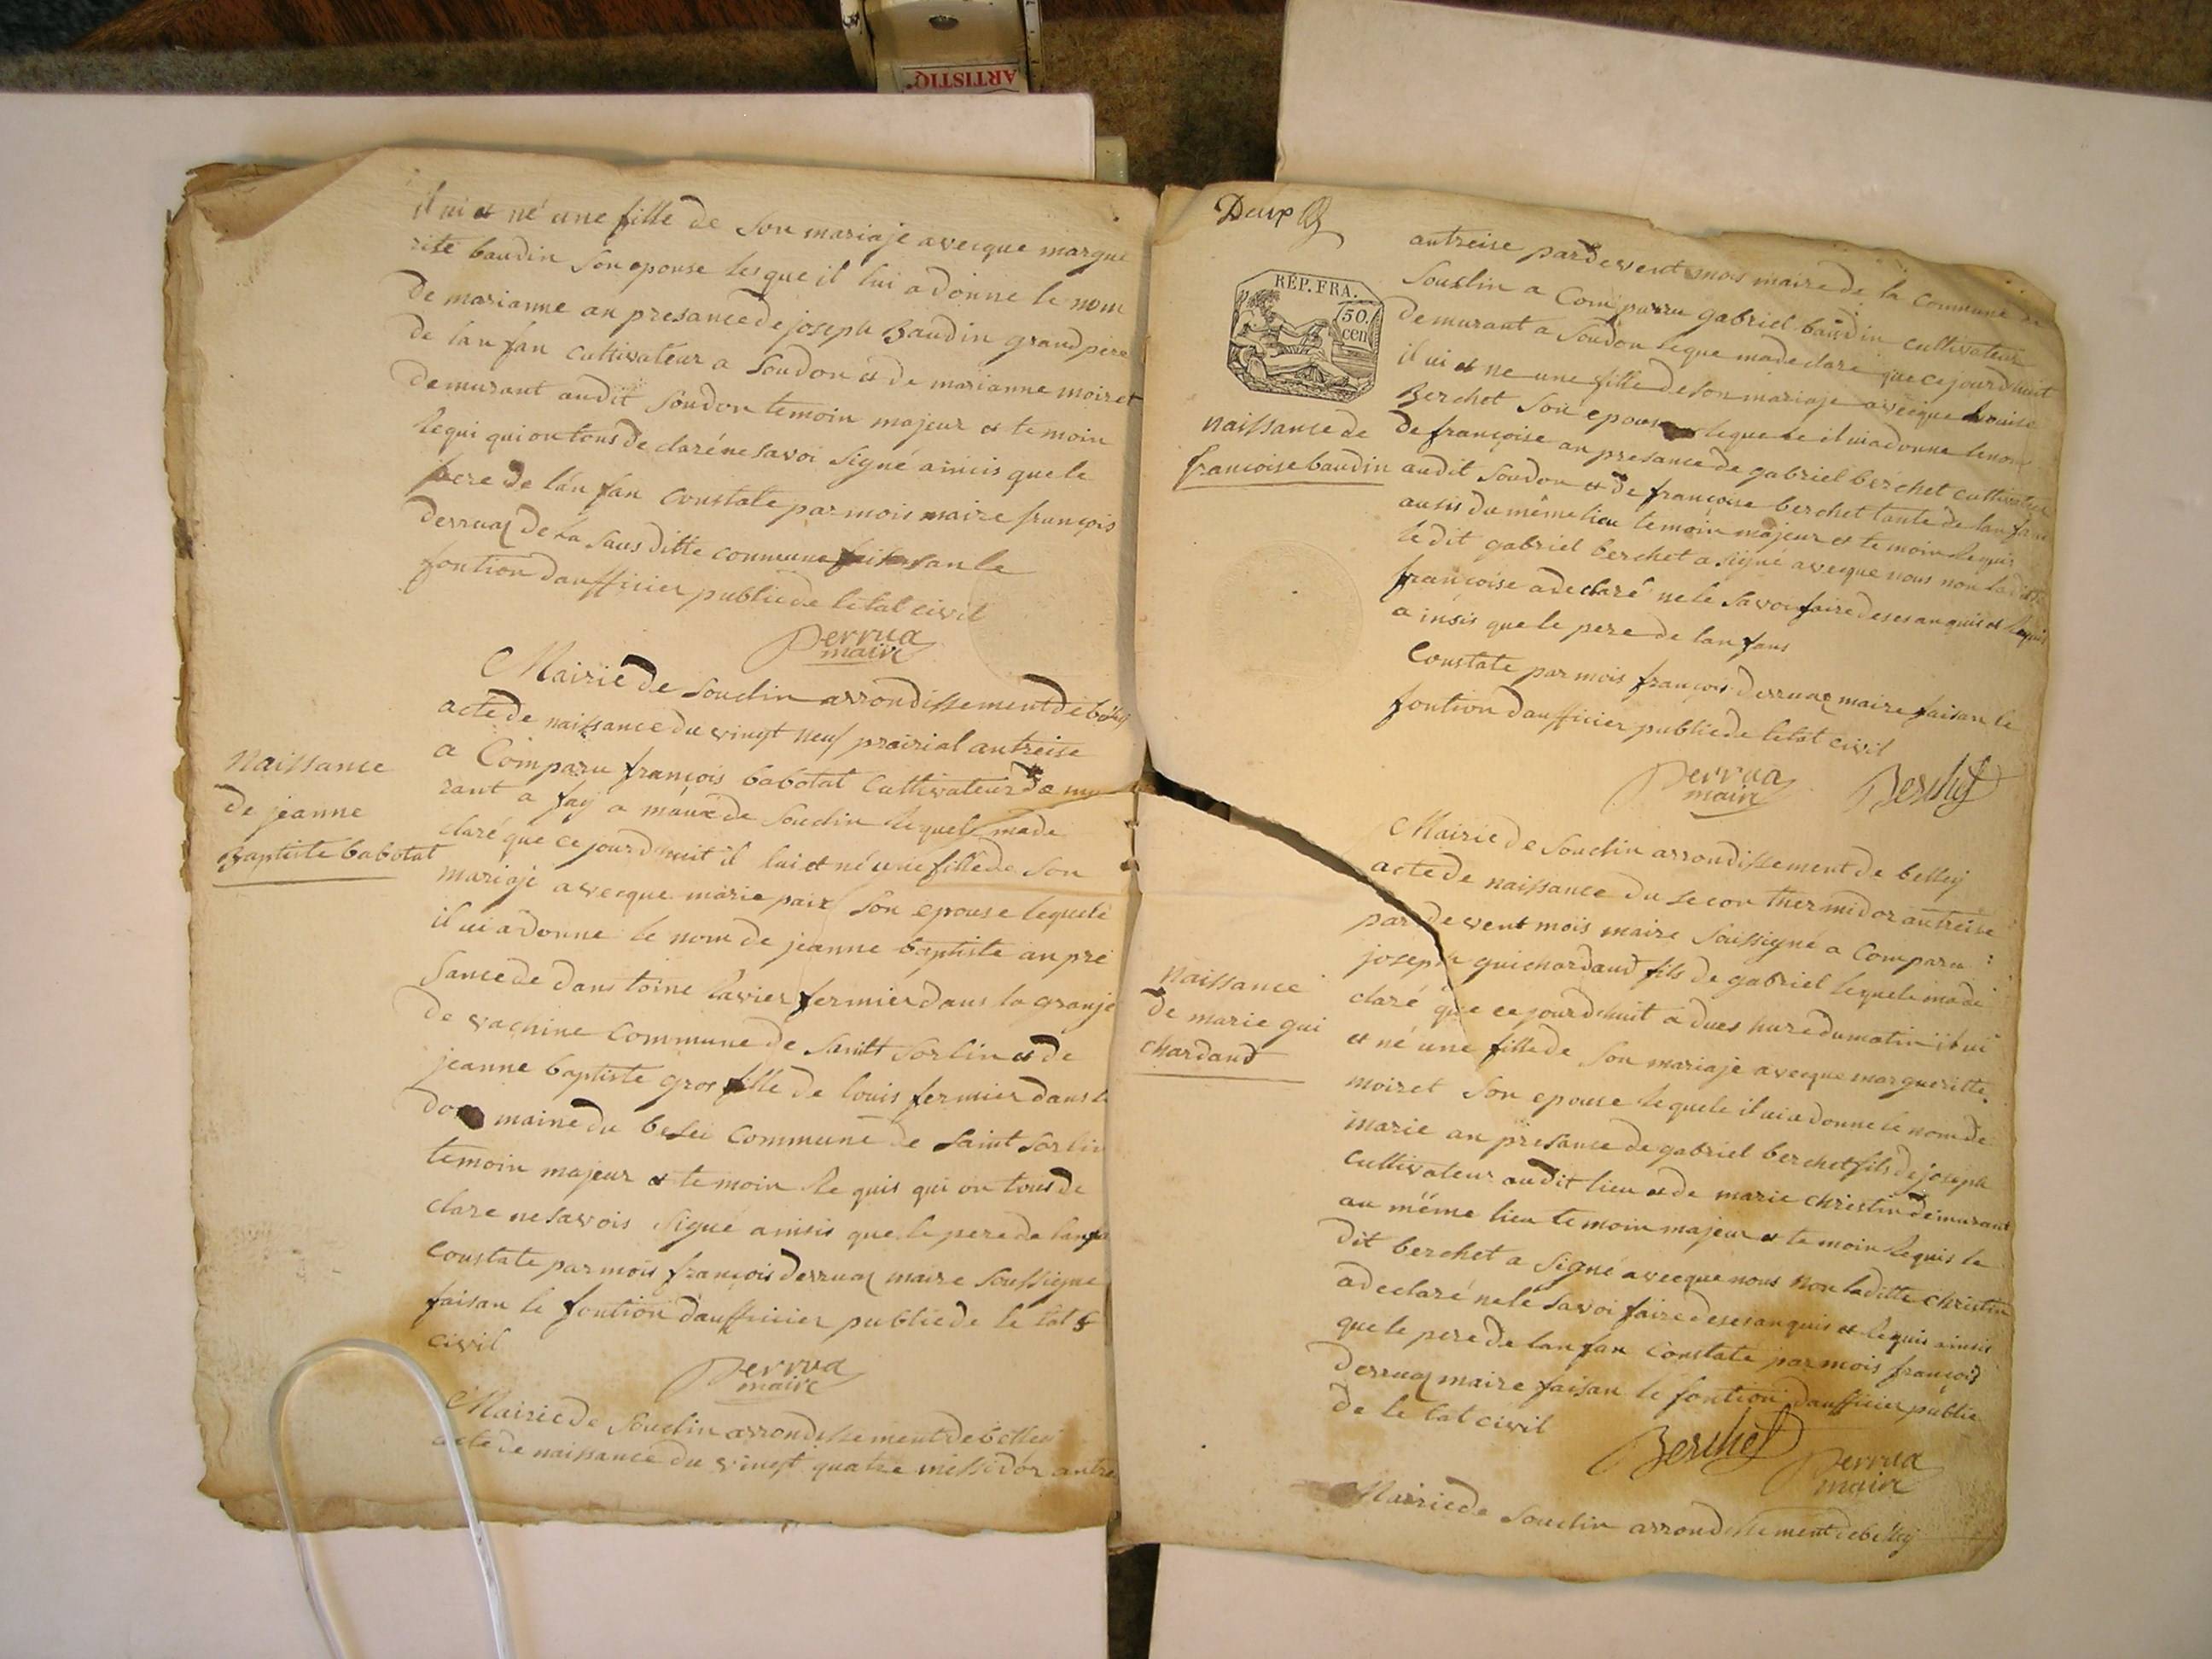 ARTISTIQ
il ui et né une fille de son mariaje avecque margue
rite baudin son epouse les que il lui a donne le nom
de marianne an presance de joseph Baudin grand pere
de lan fan cultivateur a Soudon et de marianne moiret
demurant audit Soudon temoin majeur et te moin
requi qui on tous de claré ne savoi signé ainsis que le
pere de lan fan Constate par mois maire françois
derruaz de la sus ditte commune faisan le
fontion daufficier publie de letat civil
Perrua
maire
Mairie de Souclin arrondissement de belley
acte de naissance du vingt neuf prairial antreise
a Comparu françois babolat Cultivateur de mu
rant a fay a maux de Souclin lequel made
claré que ce jourdhuit il lui et né une fille de son
mariaje avecque marie paix son epouse lequele
il ui a donne le nom de jeanne baptiste an pre
sance de dans toine lavier fermier dans la granje
de vachine Commune de Saintt Sorlin et de
jeanne baptiste gros fille de louis fermier dans le
do maine du beseu Commune de Saint Sorlin
temoin majeur et te moin re quis qui on tous de
clare ne savois signé ainsis que le pere de lanfa
Constate par mois françois derruaz maire Soussigne
faisan le fontion daufficier publie de le tat
civil
Perrua
maire
Mairie de Souclin arrondissement de belley
acte de naissance du vingt quatre messidor antre
Naissance
de jeanne
Baptiste babolat
Deux
RÉP. FRA.
50
cen
autreise pardevent mois maire de la Commune de
Souclin a Comparru gabriel baudin cultivateur
demurant a Soudon leque made claré que ce jourdhuit
il ui et ne une fille de son mariaje avecque Louise
Berchet son epouse leque le il ui a donne le nom
de françoise an presance de gabriel berchet cultivateur
audit Soudon et de françoise berchet tante de lan fan
ausis du même lieu temoin majeur et te moin requis
le dit gabriel berchet a signé avecque nous non la ditte
françoise a declaré ne le savoi faire de ses anquis et requis
a insis que le pere de lan fans
Constate par mois françois derruaz maire faisan le
fontion daufficier publie de letat civil
Perrua
maire
Berchet
naissance de
francoise baudin
Mairie de Souclin arrondissement de belley
acte de naissance du secon thermidor autreise
par de vent mois maire Soussigné a Comparu
joseph guichardaud fils de gabriel lequele made
claré que ce jourdhuit a dues hure du matin il ui
et né une fille de son mariaje avecque margueritte
moiret son epouse lequele il ui a donne le nom de
marie an presance de gabriel berchet fils de joseph
cultivateur audit lieu et de marie christin demurant
au même lieu te moin majeur et te moin requis le
dit berchet a signé avecque nous non laditte christin
a declaré ne le savoi faire de ses anquis et requis ainsis
que le pere de lan fan Constate par mois françois
derruaz maire faisan le fontion daufficier publie
de le tat civil
Berchet
Perrua
maire
Naissance
de marie gui
chardaud
Mairie de Souclin arrondissement de belley